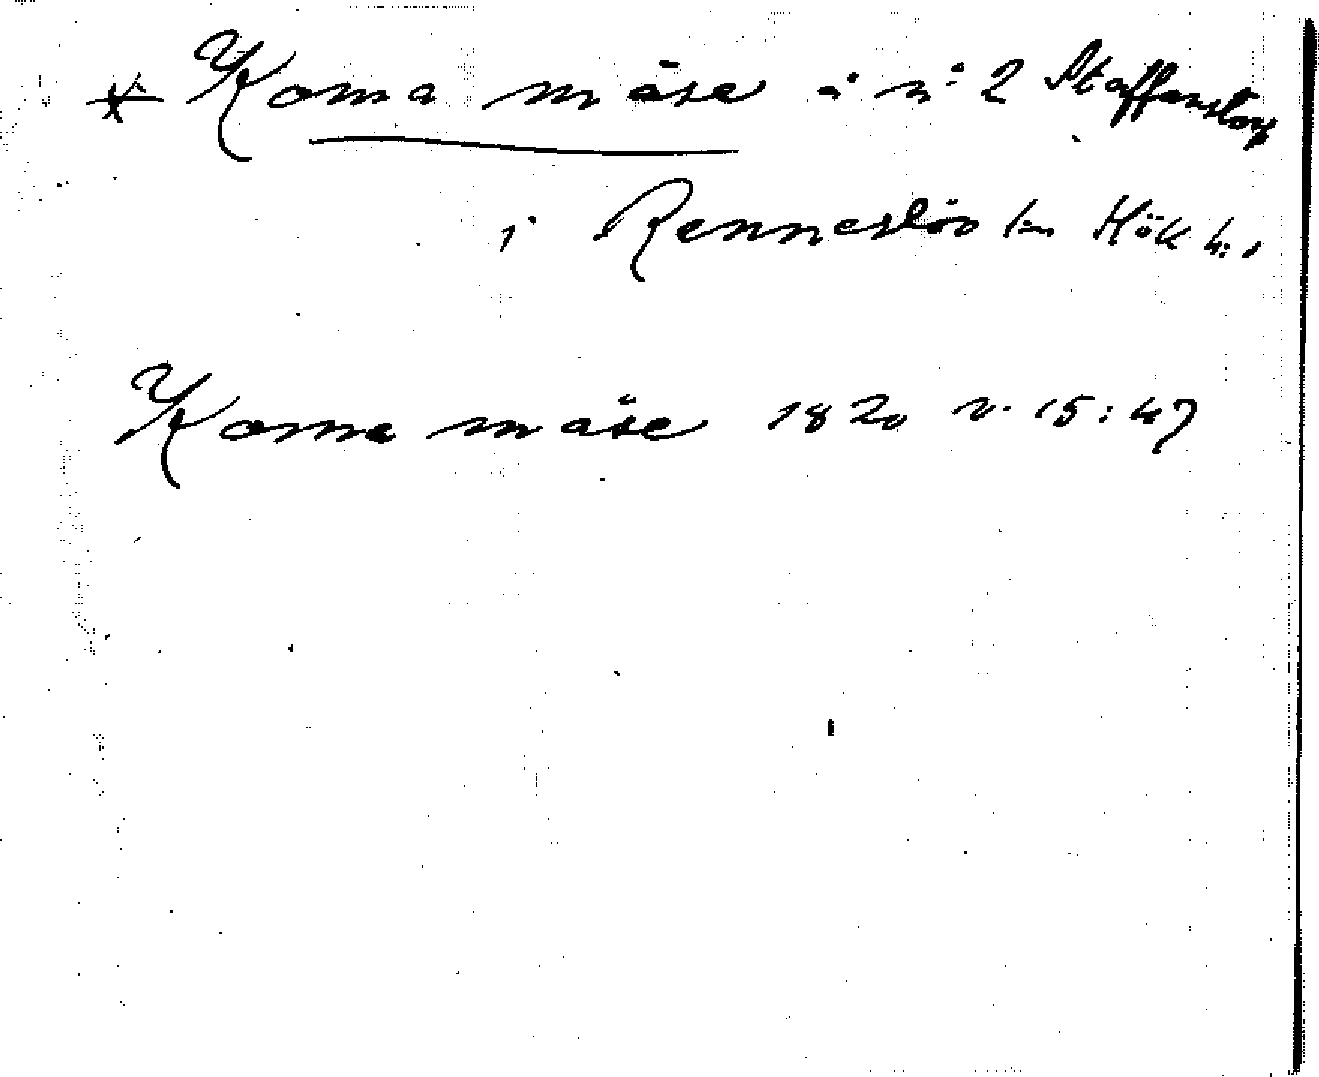 * Koma mäse å n:o 2 Staffanstorp
i Renneslöv sn Hök h.,
Koma mäse 1820 v. 15:47